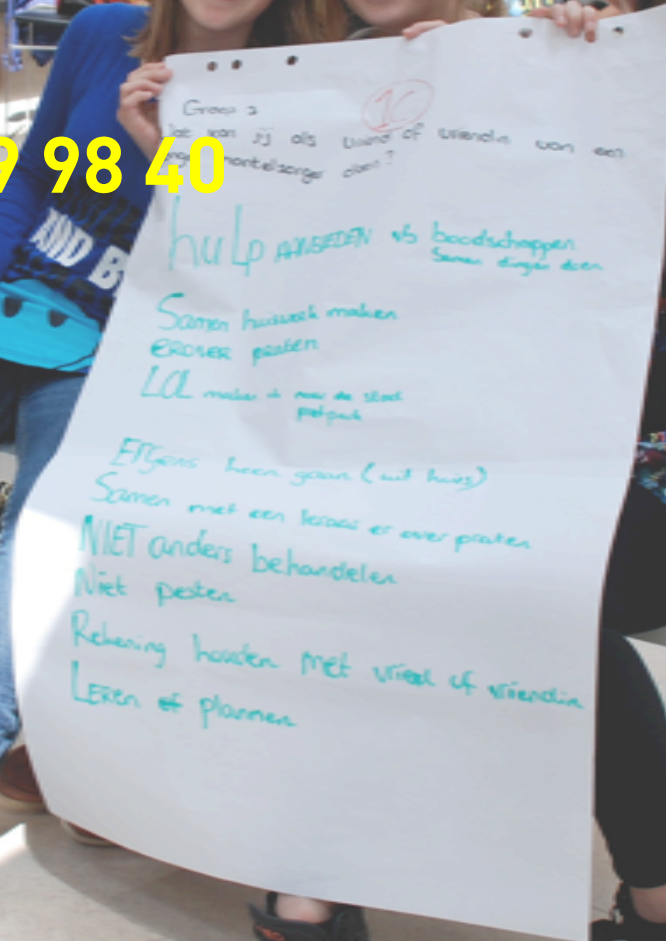 Groep 2
10
kan jij als vriend of vriendin van een
mantelzorger doen?
9 98 40
AND B
hulp AANBIEDEN vb boodschappen
Samen dingen doen
Samen huiswerk maken
EROVER praten
LOL maken naar de stad
pretpark
Ergens heen gaan (uit huis)
Samen met een leraar er over praten
NIET anders behandelen
Niet pesten
Rekening houden met vriend of vriendin
LEREN of plannen